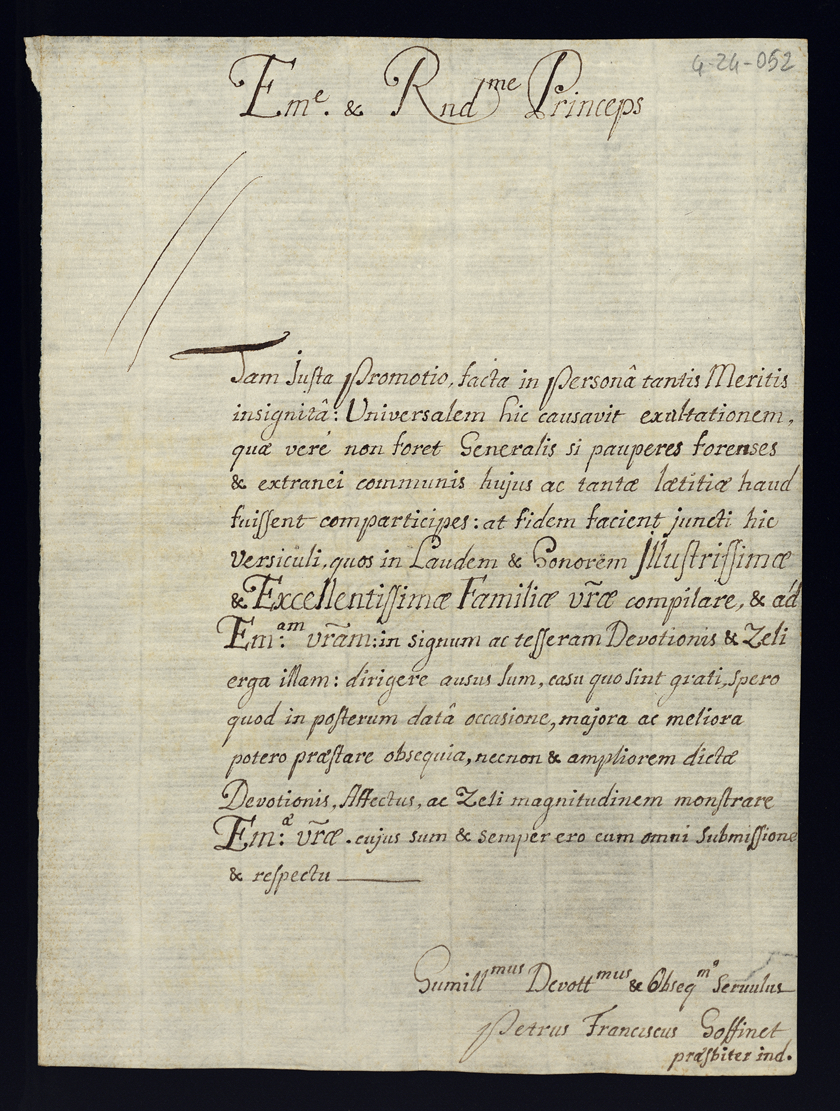 4-24-052
Em.e & Rndme Princeps
Tam Justa Promotio, facta in Personâ tantis Meritis
insignitâ: Universalem hic causavit exultationem,
quæ verè non foret Generalis si pauperes forenses
& extranei communis hujus ac tantæ lætitiæ haud
fuissent comparticipes: at fidem facient juncti hic
versiculi, quos in Laudem & Honorem Jllustrissimæ
& Excellentissimæ Familiæ vr̃æ compilare, & ad
Em:am vr̃am: in signum ac tesseram Devotionis & Zeli
erga illam: dirigere ausus sum, casu quo sint grati, spero
quod in posterum datâ occasione, majora ac meliora
potero præstare obsequia, necnon & ampliorem dictæ
Devotionis, Affectus, ac Zeli magnitudinem monstrare
Em:æ vr̃æ. cujus sum & semper ero cum omni submissione
& respectu
Humillmus Devottmus & Obseqmꝰ Servulus
Petrus Franciscus Goffinet
præsbiter ind.